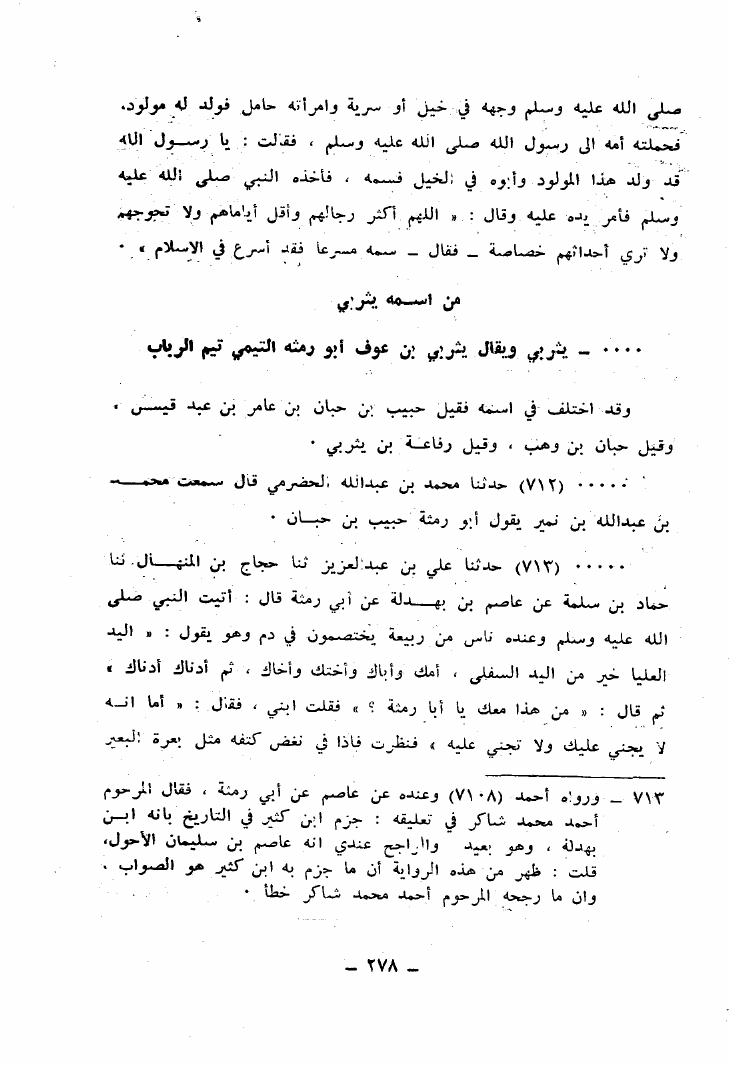 صلى الله عليه وسلم وجهه في خيل أو سرية وامرأته حامل فولد له مولود،
فحملته أمه الى رسول الله صلى الله عليه وسلم ، فقالت : يا رسول الله
قد ولد هذا المولود وأبوه في الخيل فسمه ، فأخذه النبي صلى الله عليه
وسلم فأمر يده عليه وقال : « اللهم أكثر رجالهم وأقل أياماهم ولا تحوجهم
ولا تري أحدائهم خصاصة ـ فقال ـ سمه مسرعا فقد أسرع في الاسلام » ٠
من اسمه يثربي
٠٠٠٠ ـ يثربي ويقال يثربي بن عوف أبو رمثه التيمي تيم الرباب
وقد اختلف في اسمه فقيل حبيب بن حبان بن عامر بن عبد قيس ،
وقيل حبان بن وهب ، وقيل رفاعة بن يثربي ٠
٠٠٠٠٠ (٧١٢) حدثنا محمد بن عبدالله الحضرمي قال سمعت محمد
بن عبدالله بن نمير يقول أبو رمثة حبيب بن حبان ٠
٠٠٠٠٠ (٧١٣) حدثنا علي بن عبدالعزيز ثنا حجاج بن المنهال ثنا
حماد بن سلمة عن عاصم بن بهدلة عن أبي رمثة قال : أتيت النبي صلى
الله عليه وسلم وعنده ناس من ربيعة يختصمون في دم وهو يقول : « اليد
العليا خير من اليد السفلى ، أمك وأباك وأختك وأخاك ، ثم أدناك أدناك »
ثم قال : « من هذا معك يا أبا رمثة ؟ » فقلت ابني ، فقال : « أما انه
لا يجني عليك ولا تجني عليه » فنظرت فاذا في نغض كتفه مثل بعرة البعير
٧١٣ ـ ورواه أحمد (٧١٠٨) وعنده عن عاصم عن أبي رمثة ، فقال المرحوم
أحمد محمد شاكر في تعليقه : جزم ابن كثير في التاريخ بانه ابن
بهدلة ، وهو بعيد والراجح عندي انه عاصم بن سليمان الأحول،
قلت : ظهر من هذه الرواية أن ما جزم به ابن كثير هو الصواب .
وان ما رجحه المرحوم أحمد محمد شاكر خطأ ٠
ـ ٢٧٨ ـ